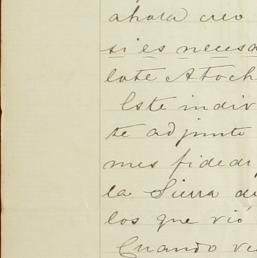 ahora creo
si es necesa
late Atoch
Este indiv
te adjunto
mes fidedi
la Sierra de
los que vió
Cuando ve